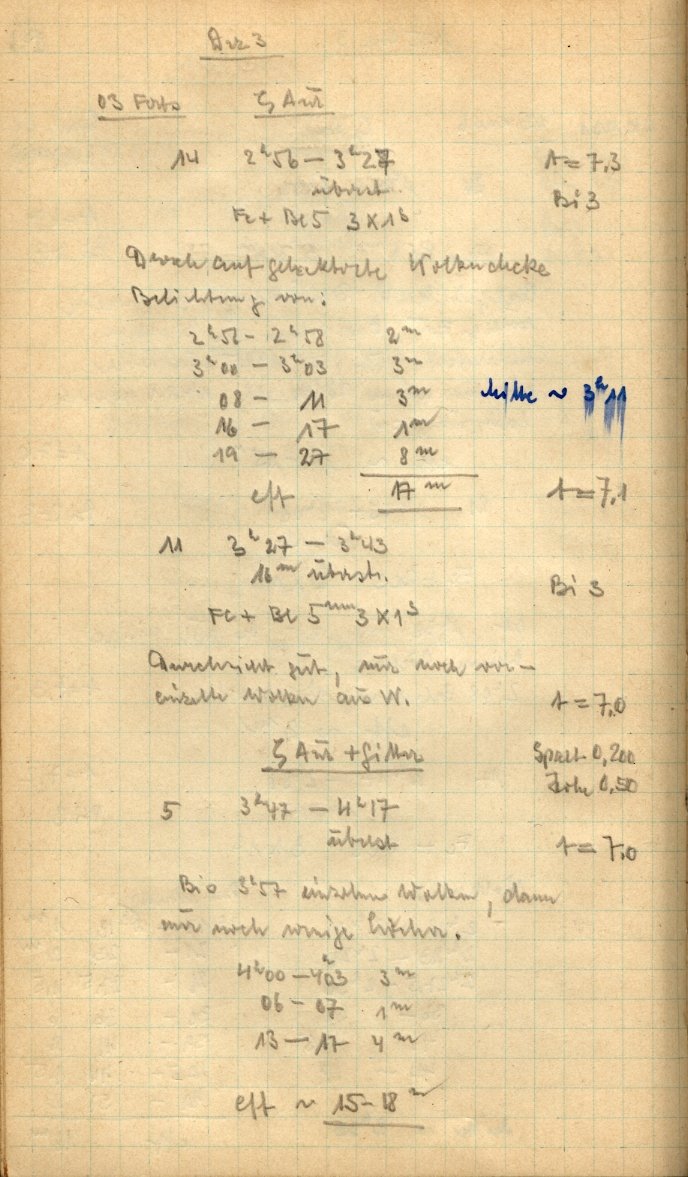 Dez 3
03 Forts ζ Aur
14 2ʰ56 – 3ʰ27 t = 7,3
überst. Bi 3
Fe + Be 5 3×1ˢ
Durch aufgelockerte Wolkendecke
Belichtung von:
2ʰ56 – 2ʰ58 2ᵐ
3ʰ00 – 3ʰ03 3ᵐ
08 – 11 3ᵐ Mitte ~ 3ʰ11
16 – 17 1ᵐ
19 – 27 8ᵐ
eff 17ᵐ t = 7,1
11 3ʰ27 – 3ʰ43
16ᵐ überst. Bi 3
Fe + Be 5ᵐᵐ 3×1ˢ
Durchsicht gut, nur noch ver-
einzelte Wolken aus W. t = 7,0
ζ Aur + Gitter Spalt 0,200
0,50
5 3ʰ47 – 4ʰ17
überst t = 7,0
Bis 3ʰ57 einzelne Wolken, dann
nur noch wenige Löcher.
4ʰ00 – 4ʰ03 3ᵐ
06 – 07 1ᵐ
13 – 17 4ᵐ
eff ~ 15–18ᵐ